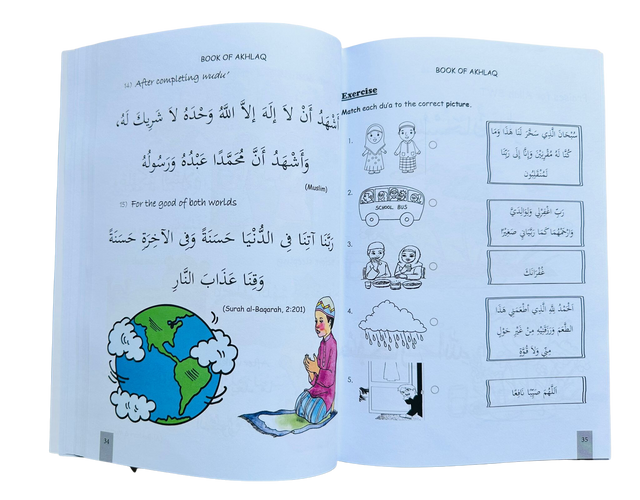 BOOK OF AKHLAQ
14) After completing wudu'
أَشْهَدُ أَنْ لاَ إلَهَ إلاَّ اللَّهُ وَحْدَهُ لاَ شَرِيكَ لَهُ،
وَأَشْهَدُ أَنَّ مُحَمَّدًا عَبْدُهُ وَرَسُولُهُ
(Muslim)
15) For the good of both worlds
رَبَّنَا آتِنَا فِى الدُّنْيَا حَسَنَةً وَفِى الآخِرَةِ حَسَنَةً
وَقِنَا عَذَابَ النَّارِ
(Surah al-Baqarah, 2:201)
34
BOOK OF AKHLAQ
Exercise
Match each du'a to the correct picture.
1.
سُبْحَانَ الَّذِي سَخَّرَ لَنَا هَذَا وَمَا
كُنَّا لَهُ مُقْرِنِيْنَ وَإِنَّا إِلَى رَبِّنَا
لَمُنْقَلِبُونَ
2.
SCHOOL BUS
رَبِّ اغْفِرْلِي وَلِوَالِدَيَّ
وَارْحَمْهُمَا كَمَا رَبَّيَانِي صَغِيْرًا
3.
غُفْرَانَكَ
4.
الْحَمْدُ للهِ الَّذِي أَطْعَمَنِي هَذَا
الطَّعَامَ وَرَزَقَنِيْهِ مِنْ غَيْرِ حَوْلٍ
مِنِّي وَلاَ قُوَّةٍ
5.
اَللَّهُمَّ صَيِّبًا نَافِعًا
35